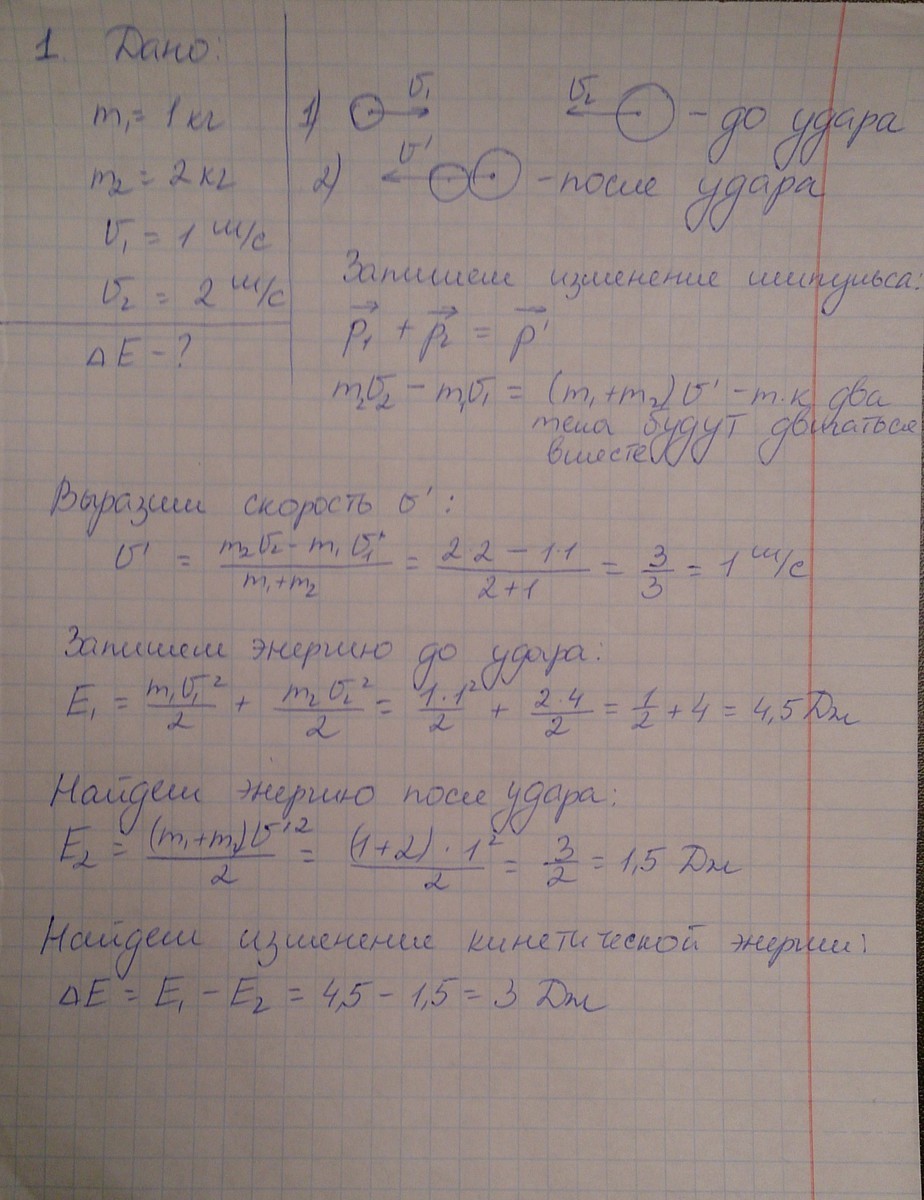 1. Дано:
m₁ = 1 кг
m₂ = 2 кг
υ₁ = 1 м/с
υ₂ = 2 м/с
ΔE - ?
1) υ₁ υ₂ - до удара
2) υ' - после удара
Запишем изменение импульса:
p₁ + p₂ = p'
m₂υ₂ - m₁υ₁ = (m₁+m₂)υ' - т.к два
тела будут двигаться
вместе
Выразим скорость υ':
υ' = (m₂υ₂ - m₁υ₁)/(m₁+m₂) = (2·2 - 1·1)/(2+1) = 3/3 = 1 м/с
Запишем энергию до удара:
E₁ = m₁υ₁²/2 + m₂υ₂²/2 = 1·1²/2 + 2·4/2 = 1/2 + 4 = 4,5 Дж
Найдем энергию после удара:
E₂ = (m₁+m₂)υ'²/2 = (1+2)·1²/2 = 3/2 = 1,5 Дж
Найдем изменение кинетической энергии:
ΔE = E₁ - E₂ = 4,5 - 1,5 = 3 Дж